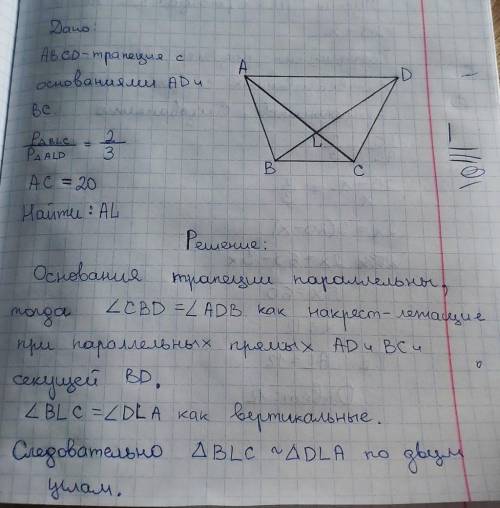 Дано:
ABCD-трапеция с
основаниями AD и
BC.
P△BLC / P△ALD = 2/3
AC = 20
Найти: AL
A
D
L
B
C
Решение:
Основания трапеции параллельны,
тогда ∠CBD = ∠ADB как накрест-лежащие
при параллельных прямых AD и BC и
секущей BD.
∠BLC = ∠DLA как вертикальные.
Следовательно △BLC ~ △DLA по двум
углам.